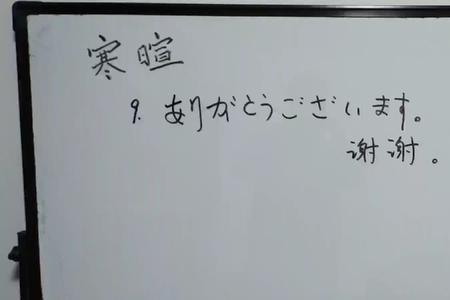 寒暄
9. ありがとうございます。
谢谢。